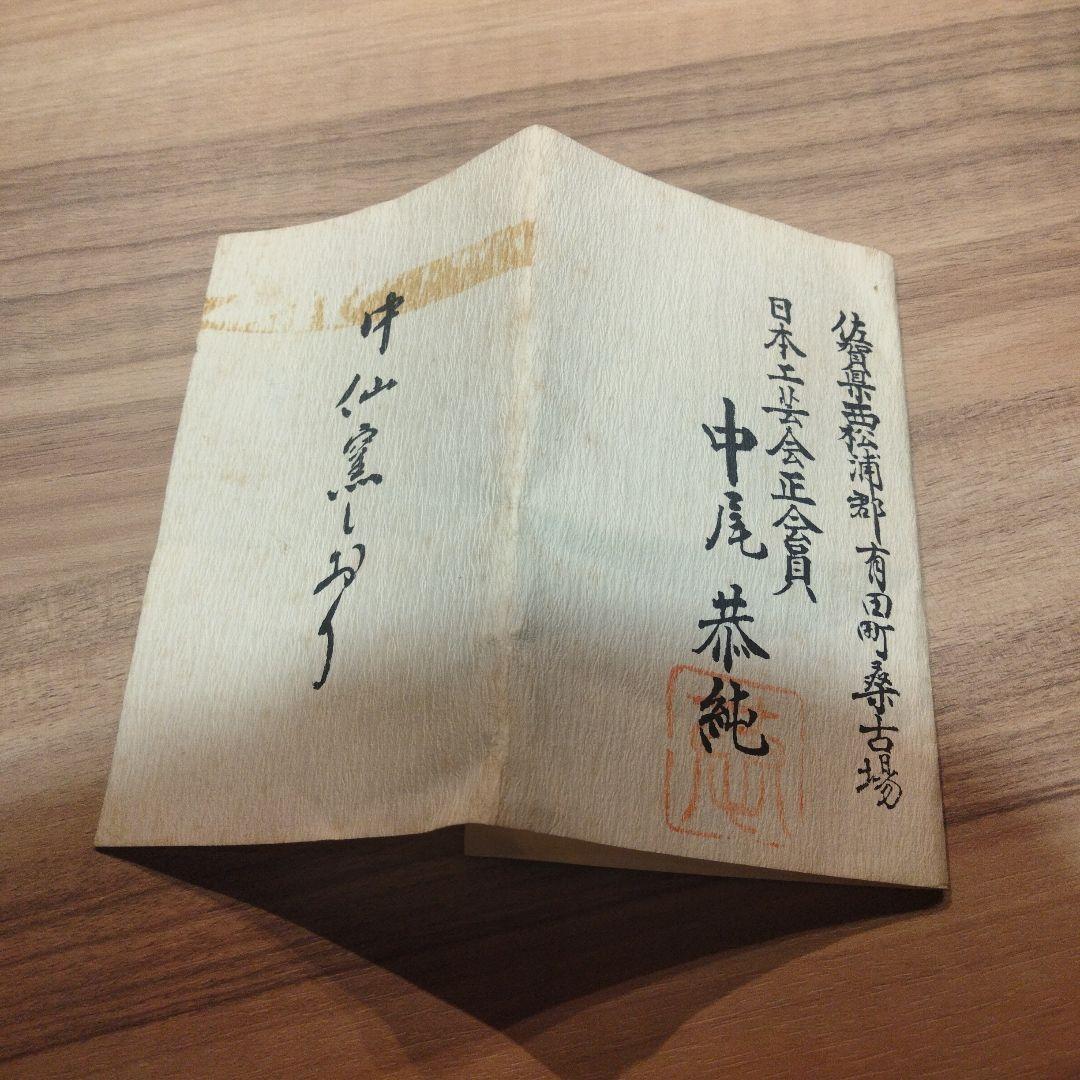 佐賀県西松浦郡有田町桑古場
日本工芸会正会員
中尾恭純
中仙窯しおり